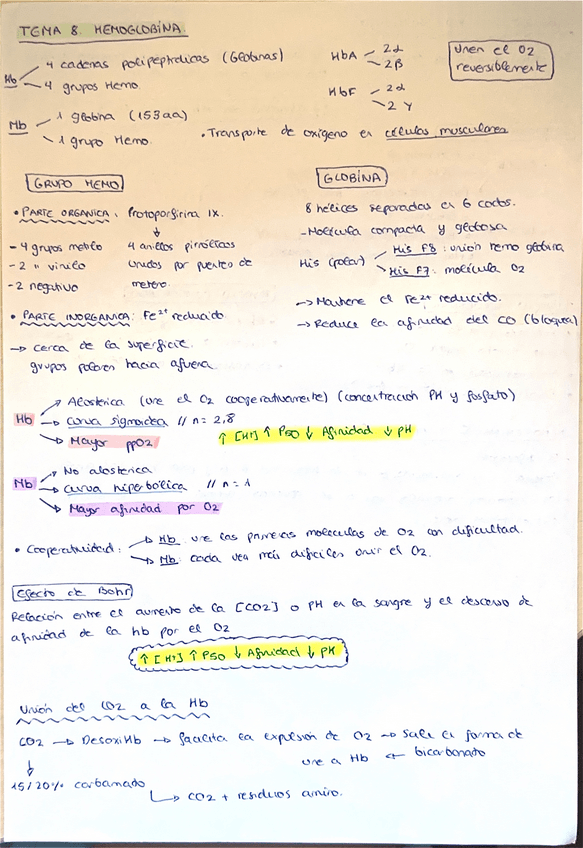 TEMA 8. HEMOGLOBINA.
Hb
4 cadenas polipeptídicas (Globinas)
4 grupos Hemo.
HbA
2α
2β
HbF
2α
2γ
Unen el O2
reversiblemente
Mb
1 globina (153aa)
1 grupo Hemo.
• Transporte de oxígeno en células musculares
GRUPO HEMO
• PARTE ORGANICA: Protoporfirina IX.
↓
- 4 grupos metilo
- 2 " vinilo
- 2 negativo
4 anillos pirrólicos
unidos por puentes de
metero.
• PARTE INORGANICA: Fe2+ reducido
→ cerca de la superficie.
grupos polares hacia afuera.
GLOBINA
8 hélices separadas en 6 codos.
- Molécula compacta y globosa
His (polar)
His F8: unión hemo globina
His F7: molécula O2
→ Mantiene el Fe2+ reducido.
→ Reduce la afinidad del CO (bloquea)
Hb
→ Alostérica (une el O2 cooperativamente) (concentración PH y fosfato)
→ curva sigmoidea // n = 2,8
→ Mayor ppO2
↑ [H+] ↑ P50 ↓ Afinidad ↓ pH
Mb
→ No alosterica
→ curva hiperbólica // n = 1
→ Mayor afinidad por O2
• Cooperatividad:
→ Hb: une las primeras moleculas de O2 con dificultad.
→ Mb: cada vez más dificiles unir el O2.
Efecto de Bohr
Relación entre el aumento de la [CO2] o PH en la sangre y el descenso de
afinidad de la hb por el O2
↑ [H+] ↑ P50 ↓ Afinidad ↓ pH
Unión del CO2 a la Hb
CO2 → DesoxiHb → facilita la expulsión de O2 → Sale en forma de
une a Hb ← bicarbonato
↓
15/20% carbamado
→ CO2 + residuos amino.